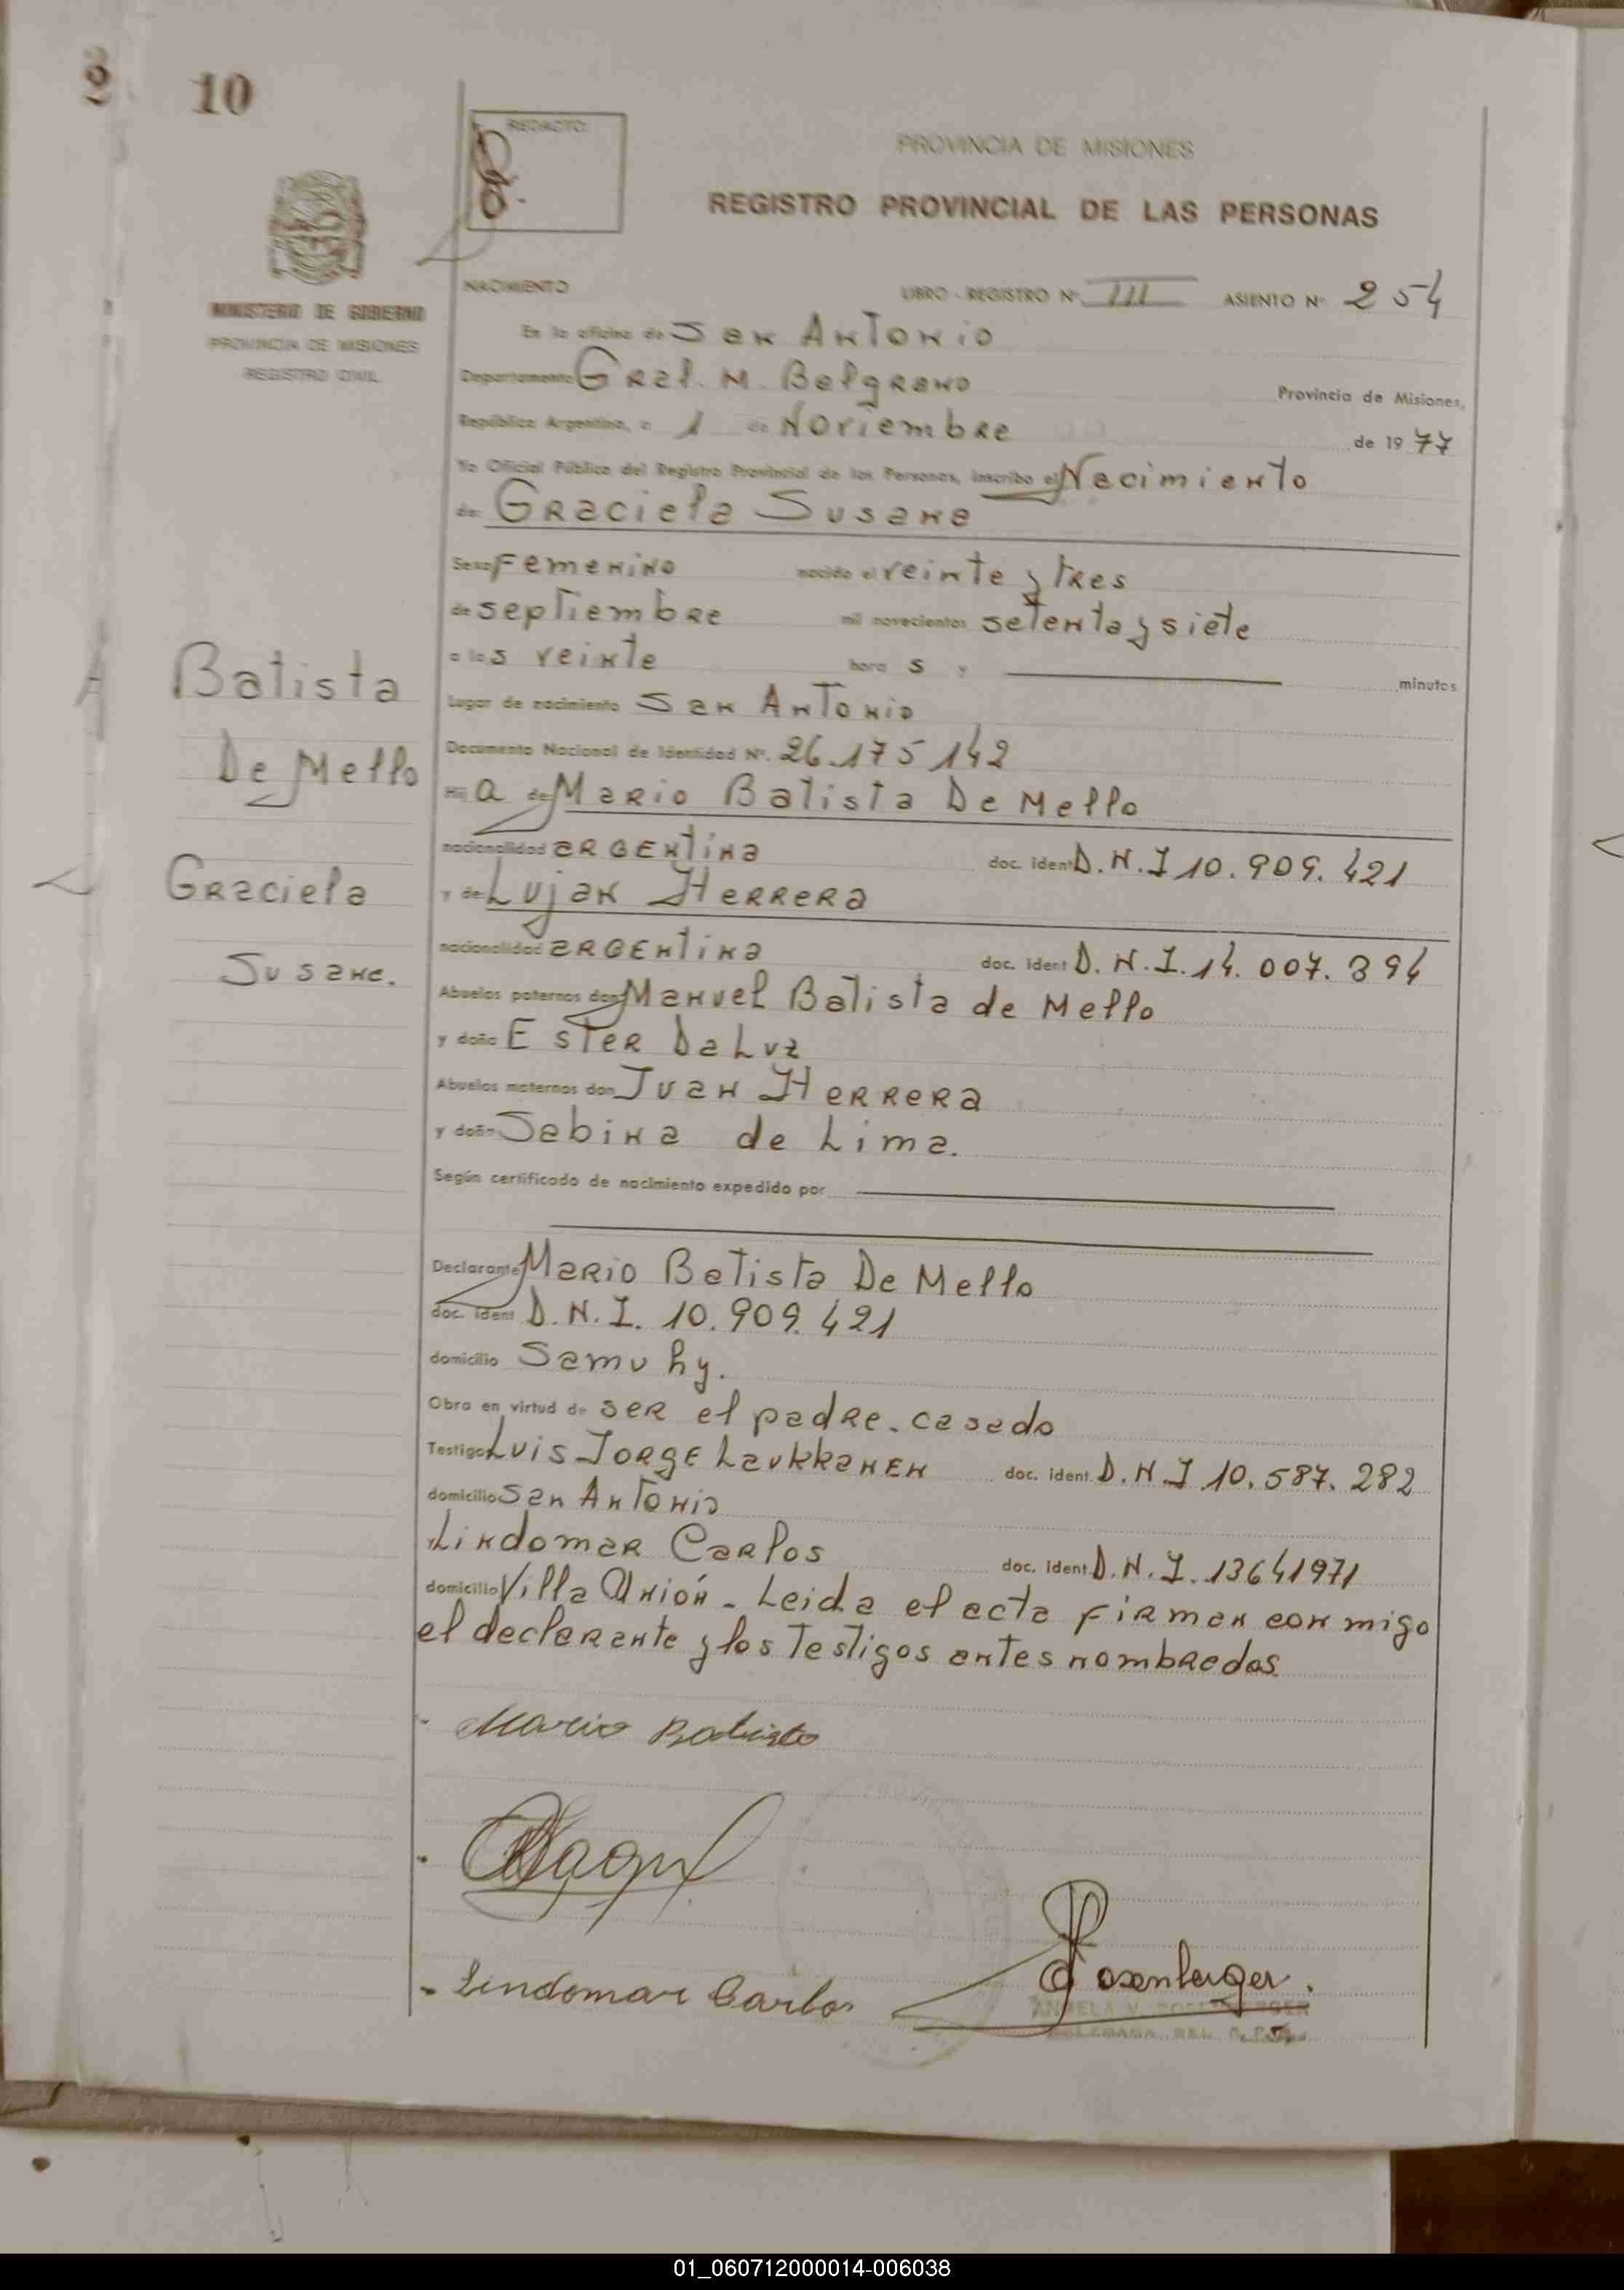 2 10
REDACTO
PROVINCIA DE MISIONES
REGISTRO PROVINCIAL DE LAS PERSONAS
MINISTERIO DE GOBIERNO
PROVINCIA DE MISIONES
REGISTRO CIVIL
NACIMIENTO LIBRO - REGISTRO Nº III ASIENTO Nº 254
En la oficina de San Antonio
Departamento Gral. M. Belgrano Provincia de Misiones,
República Argentina, a 1 de Noviembre de 1977
Yo Oficial Público del Registro Provincial de las Personas, inscribo el Nacimiento
de Graciela Susana
Sexo Femenino nacido el veinte y tres
de septiembre mil novecientos setenta y siete
a las veinte hora s y minutos
Batista
De Mello
Graciela
Susana.
Lugar de nacimiento San Antonio
Documento Nacional de Identidad Nº. 26.175142
Hij a de Mario Batista De Mello
nacionalidad argentina doc. ident D.N.I 10.909.421
y de Lujan Herrera
nacionalidad argentina doc. ident D.N.I. 14.007.394
Abuelos paternos don Manuel Batista de Mello
y doña Ester Da Luz
Abuelos maternos don Juan Herrera
y doña Sabina de Lima.
Según certificado de nacimiento expedido por
Declarante Mario Batista De Mello
doc. ident D.N.I. 10.909.421
domicilio Samuhy.
Obra en virtud de ser el padre. casado
Testigo Luis Jorge Laukkanen doc. ident. D.N.I 10.587.282
domicilio San Antonio
Lindomar Carlos doc. ident. D.N.I. 13641971
domicilio Villa Unión - Leida el acta firman conmigo
el declarante y los Testigos antes nombrados.
Mario Batista
Lindomar Carlos
Rosenberger.
01_060712000014-006038